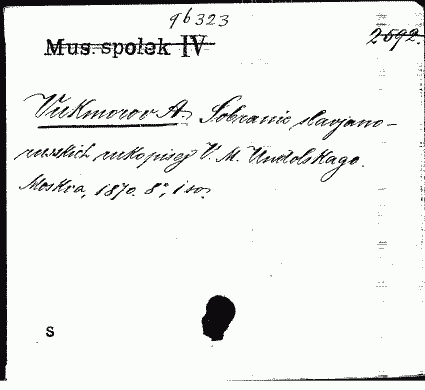 96323
Mus. spolek IV
2592.
Vukmorov A. Sobranie slavjano-
russkich rukopisej V. M. Undolskago.
Moskva, 1870. 8°, 1 sv.
s